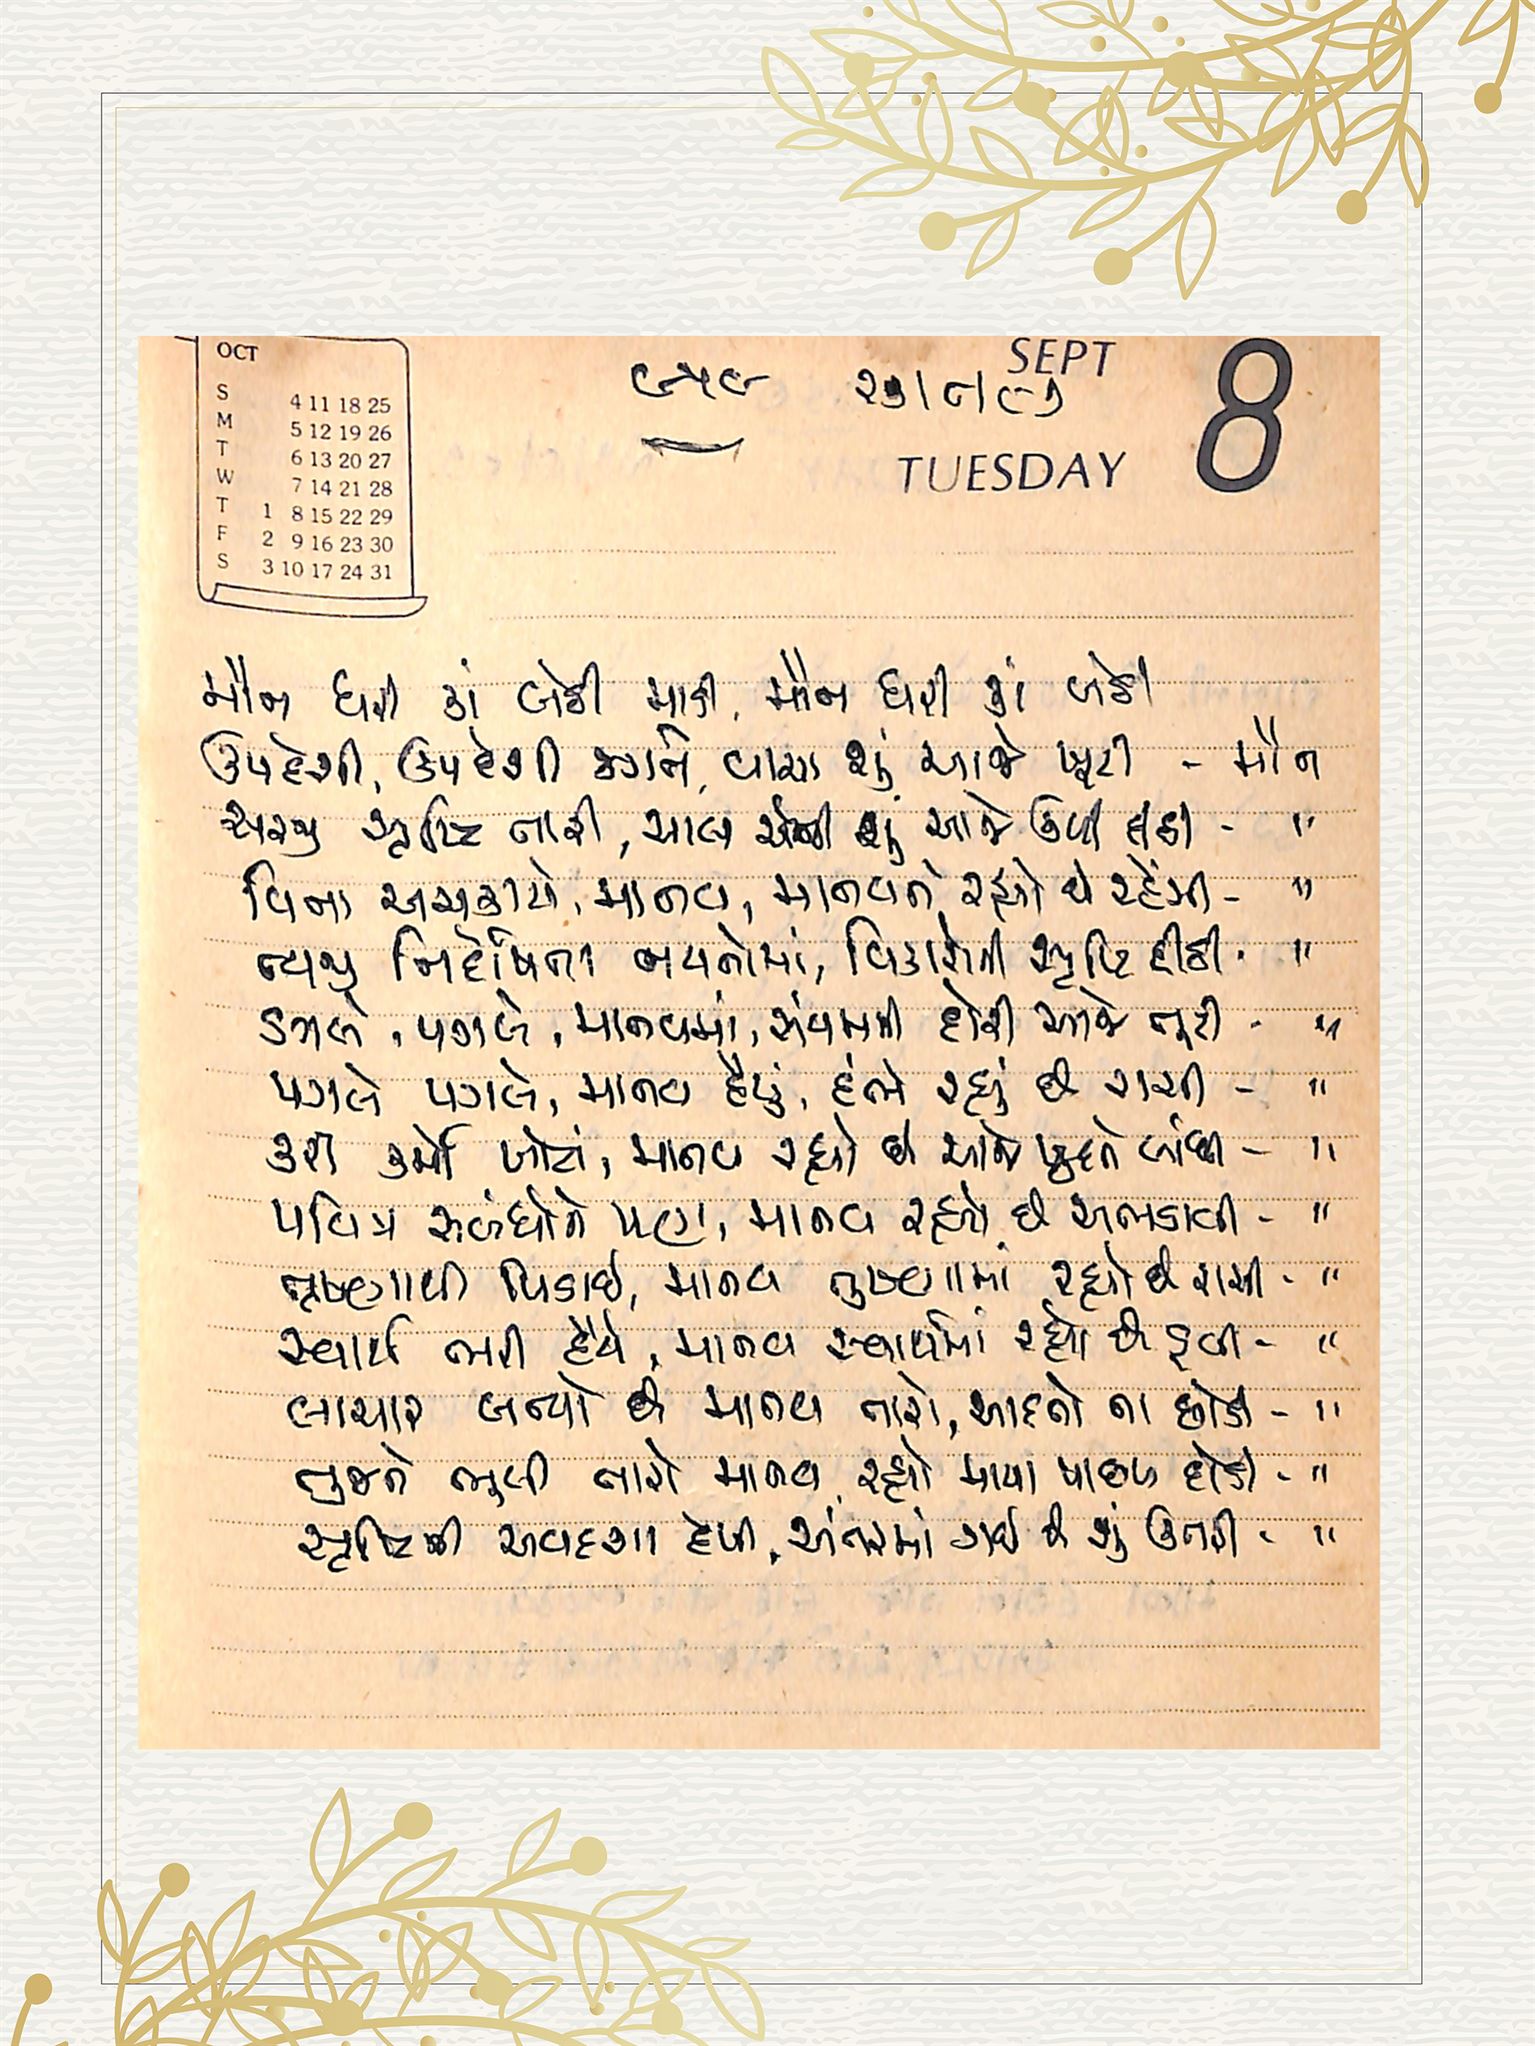 OCT
SEPT
8
TUESDAY
S 4 11 18 25
M 5 12 19 26
T 6 13 20 27
W 7 14 21 28
T 1 8 15 22 29
F 2 9 16 23 30
S 3 10 17 24 31
મૌન ધરી કાં બેઠી માડી, મૌન ધરી કાં બેઠી
ઉપદેશી, ઉપદેશી જગને, વાચા શું આજે ખૂટી - મૌન
સરજી સૃષ્ટિ તારી, ચાલ એની શું આજે ઉપી તેડી - "
વિના અચકાયે, માનવ, માનવને રહ્યો છે રહેંસી - "
ત્યજી નિર્દોષતા નયનોમાં, વિકારોની સૃષ્ટિ દીઠી - "
ડગલે, પગલે, માનવમાં, સંયમની દોરી આજે તૂટી - "
પગલે પગલે, માનવ હૈયું, દંભે રહ્યું છે રાચી - "
કરી કર્મો ખોટાં, માનવ રહ્યો છે આજે ખુદને બાંધી - "
પવિત્ર સબંધોને પણ, માનવ રહ્યો છે અભડાવી - "
તૃષ્ણાથી પિડાઈ, માનવ તૃષ્ણામાં રહ્યો છે રાચી - "
સ્વાર્થ ભરી હૈયે, માનવ સ્વાર્થમાં રહ્યો છે ડૂબી - "
લાચાર બન્યો છે માનવ તારો, આદતો ના છોડી - "
તુજને ભુલી તારો માનવ, રહ્યો માયા પાછળ દોડી - "
સૃષ્ટિની અવદશા દેખી, અંતરમાં ગઈ છે શું ઉતરી - "